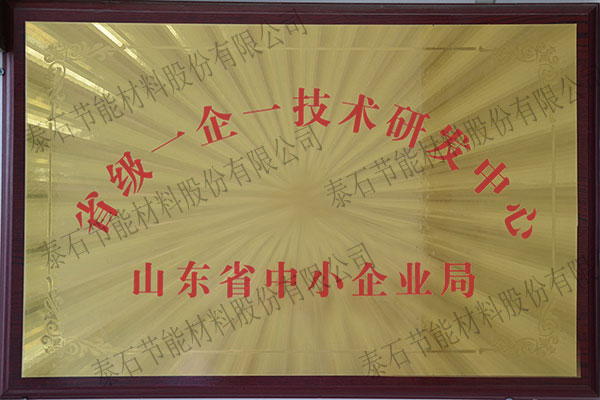 省级一企一技术研发中心
山东省中小企业局
泰石节能材料股份有限公司
泰石节能材料股份有限公司
泰石节能材料股份有限公司
泰石节能材料股份有限公司
泰石节能材料股份有限公司
泰石节能材料股份有限公司